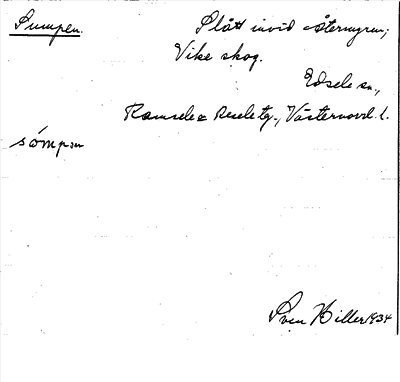 Sumpen. Slått invid Återmyran;
Vike skog.
Edsele sn.,
Ramsele o Resele tg., Västernorrl. l.
sómpən
Sven Hiller 1934